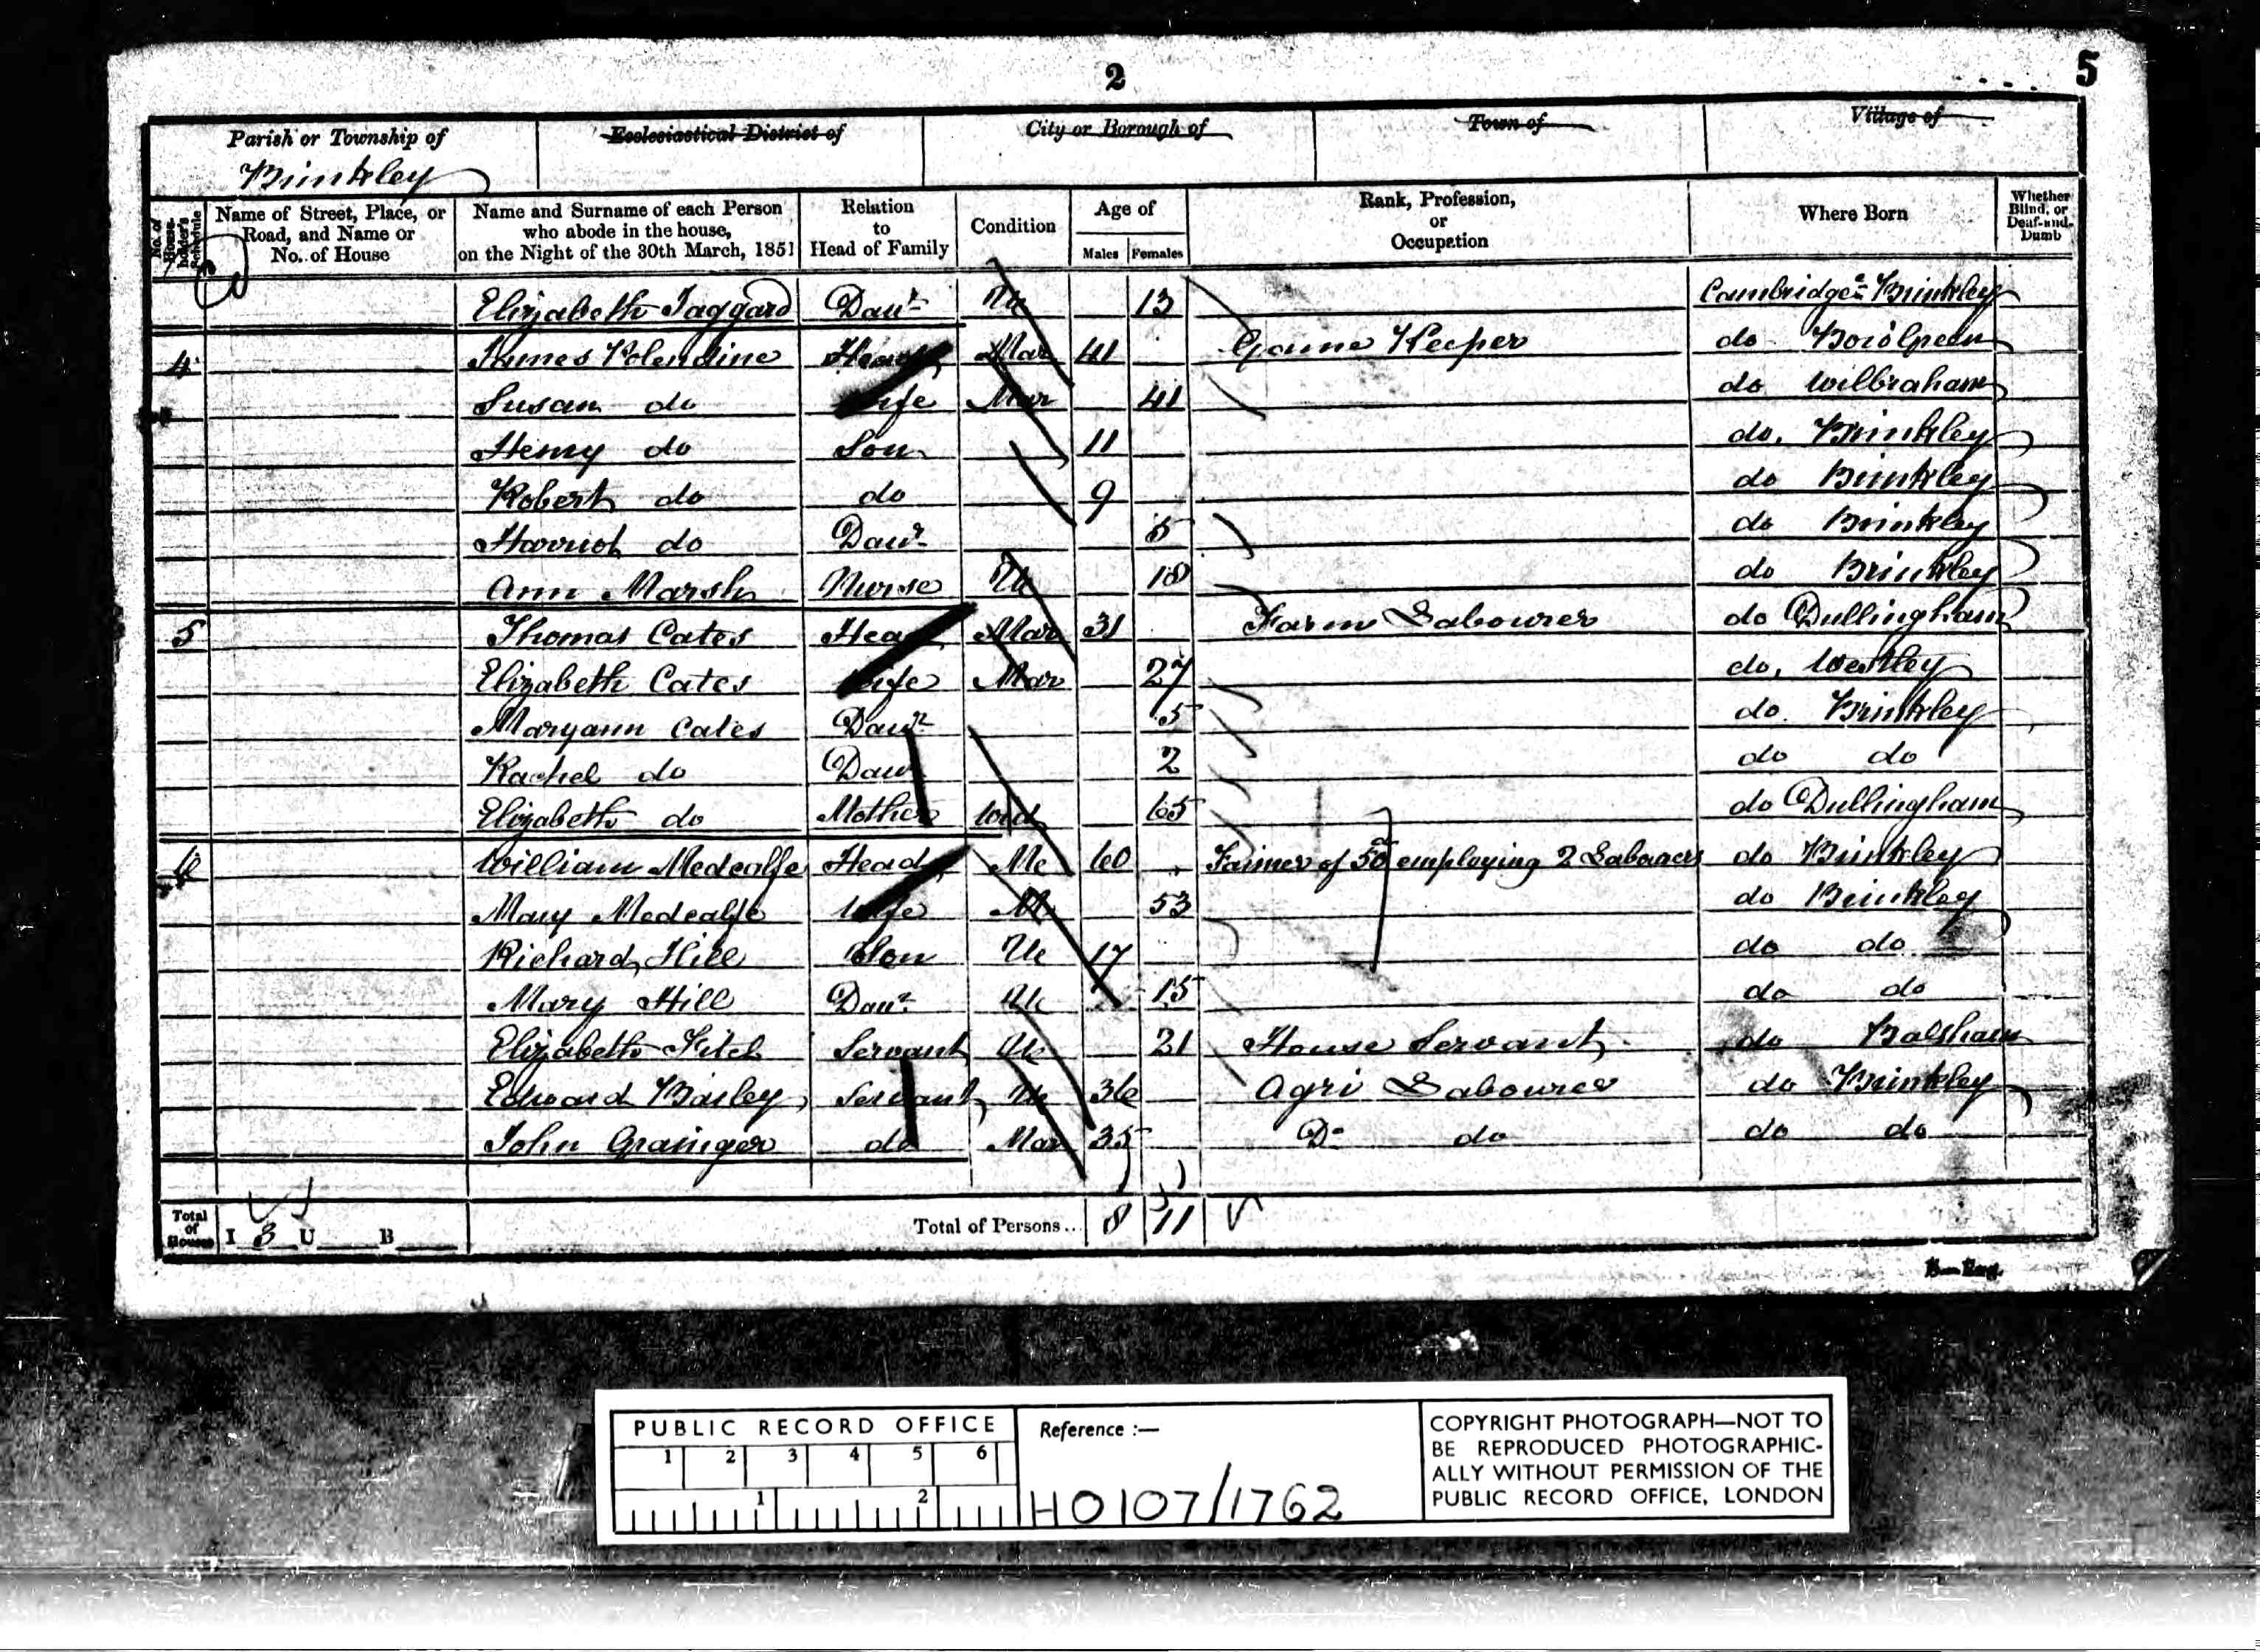 2
5
Parish or Township of
Brinkley
Ecclesiastical District of
City or Borough of
Town of
Village of
No. of House-holder's Schedule
Name of Street, Place, or Road, and Name or No. of House
Name and Surname of each Person who abode in the house, on the Night of the 30th March, 1851
Relation to Head of Family
Condition
Age of
Males
Females
Rank, Profession, or Occupation
Where Born
Whether Blind, or Deaf-and-Dumb
Elizabeth Taggard Daur Un 13 Cambridge Brinkley
4 James Kolendine Head Mar 41 Game Keeper do
Susan do Wife Mar 41 do Wilbraham
Henry do Son 11 do. Brinkley
Robert do do 9 do Brinkley
Harriot do Daur 5 do Brinkley
Ann Marsh Nurse Un 18 do Brinkley
5 Thomas Cates Head Mar 31 Farm Labourer do Dullingham
Elizabeth Cates Wife Mar 27 do. Westley
Maryann Cates Daur 5 do. Brinkley
Rachel do Daur 2 do do
Elizabeth do Mother Wid 65 do Dullingham
6 William Medcalfe Head M 60 Farmer of 50 a employing 2 Labourers do Brinkley
Mary Medcalfe Wife M 53 do Brinkley
Richard Hill Son Un 17 do do
Mary Hill Daur Un 15 do do
Elizabeth Fitch Servant Un 21 House Servant do Balsham
Edward Bailey Servant Un 36 Agri Labourer do Brinkley
John Grainger do Mar 35 Do do do do
Total of Houses I 3 U B
Total of Persons... 8 11
PUBLIC RECORD OFFICE
1 2 3 4 5 6
1 2
Reference :—
HO107/1762
COPYRIGHT PHOTOGRAPH—NOT TO
BE REPRODUCED PHOTOGRAPHIC-
ALLY WITHOUT PERMISSION OF THE
PUBLIC RECORD OFFICE, LONDON